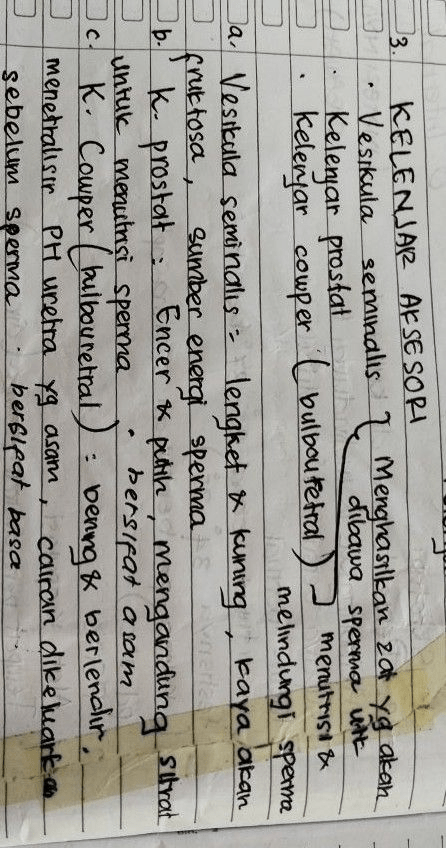 3. KELENJAR AKSESORI
· Vesikula seminalis } Menghasilkan zat yg akan
· Kelenjar prostat dibawa sperma utk
· Kelenjar cowper (bulbouretral) menutrisi &
melindungi sperma
a. Vesikula seminalis = lengket & kuning, kaya akan
fruktosa, sumber energi sperma
b. K. prostat : Encer & putih, mengandung sitrat
untuk menutrisi sperma · bersifat asam
c. K. Cowper (bulbouretral) = bening & berlendir,
menetralisir PH uretra yg asam, cairan dikeluarkan
sebelum sperma · bersifat basa